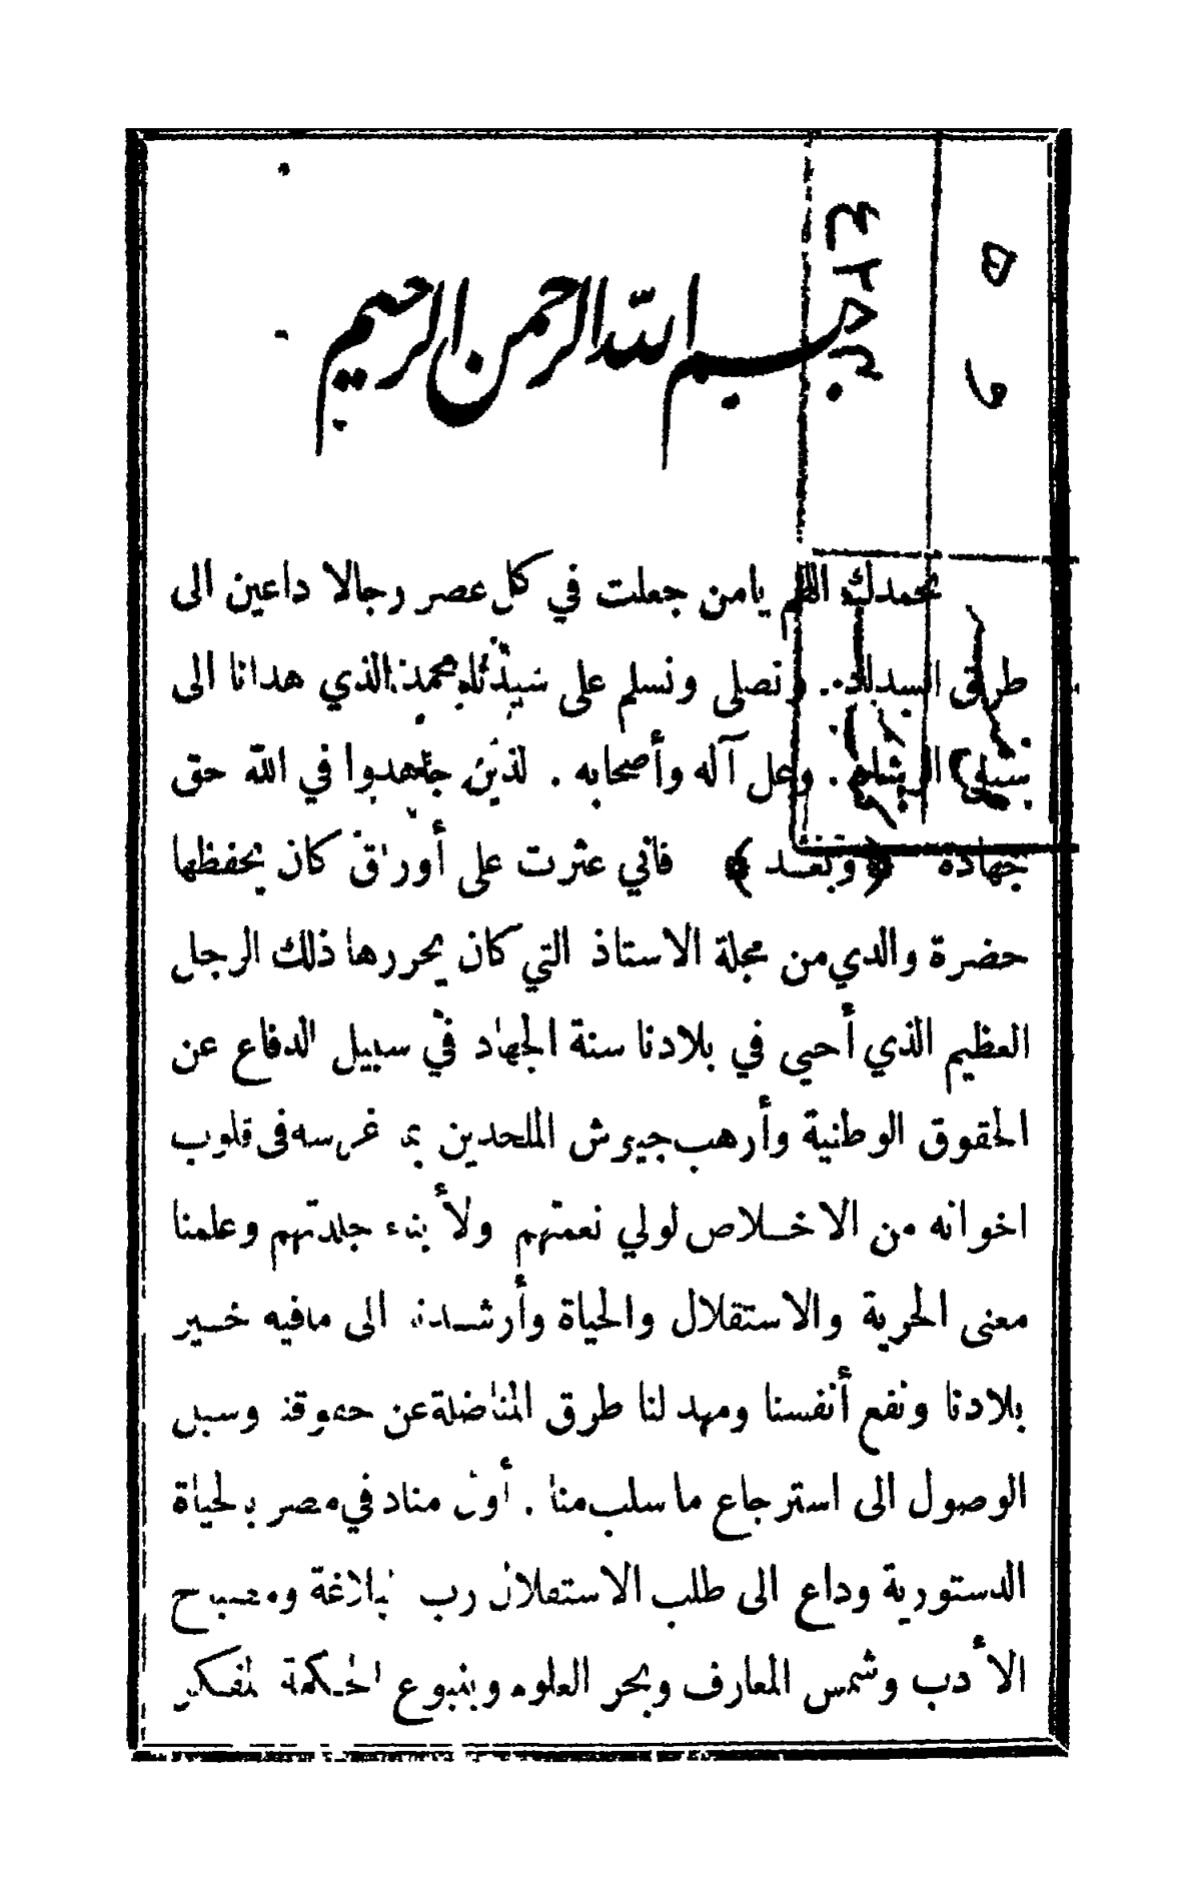 بسم الله الرحمن الرحيم
نحمدك اللهم يامن جعلت في كل عصر رجالا داعين الى
طريق السداد . ونصلى ونسلم على سيدنا محمد الذي هدانا الى
سبيل الرشاد . وعلى آله وأصحابه . لذين جاهدوا في الله حق
جهاده ﴿ وبعد ﴾ فاني عثرت على أوراق كان يحفظها
حضرة والدي من مجلة الاستاذ التي كان يحررها ذلك الرجل
العظيم الذي أحيى في بلادنا سنة الجهاد في سبيل الدفاع عن
الحقوق الوطنية وأرهب جيوش الملحدين بما غرسه فى قلوب
اخوانه من الاخلاص لولي نعمتهم ولأبناء جلدتهم وعلمنا
معنى الحرية والاستقلال والحياة وأرشدنا الى مافيه خير
بلادنا ونفع أنفسنا ومهد لنا طرق المناضلة عن حقوقنا وسبل
الوصول الى استرجاع ما سلب منا . أول مناد في مصر بالحياة
الدستورية وداع الى طلب الاستقلال رب البلاغة ومصباح
الأدب وشمس المعارف وبحر العلوم وينبوع الحكمة المفكر